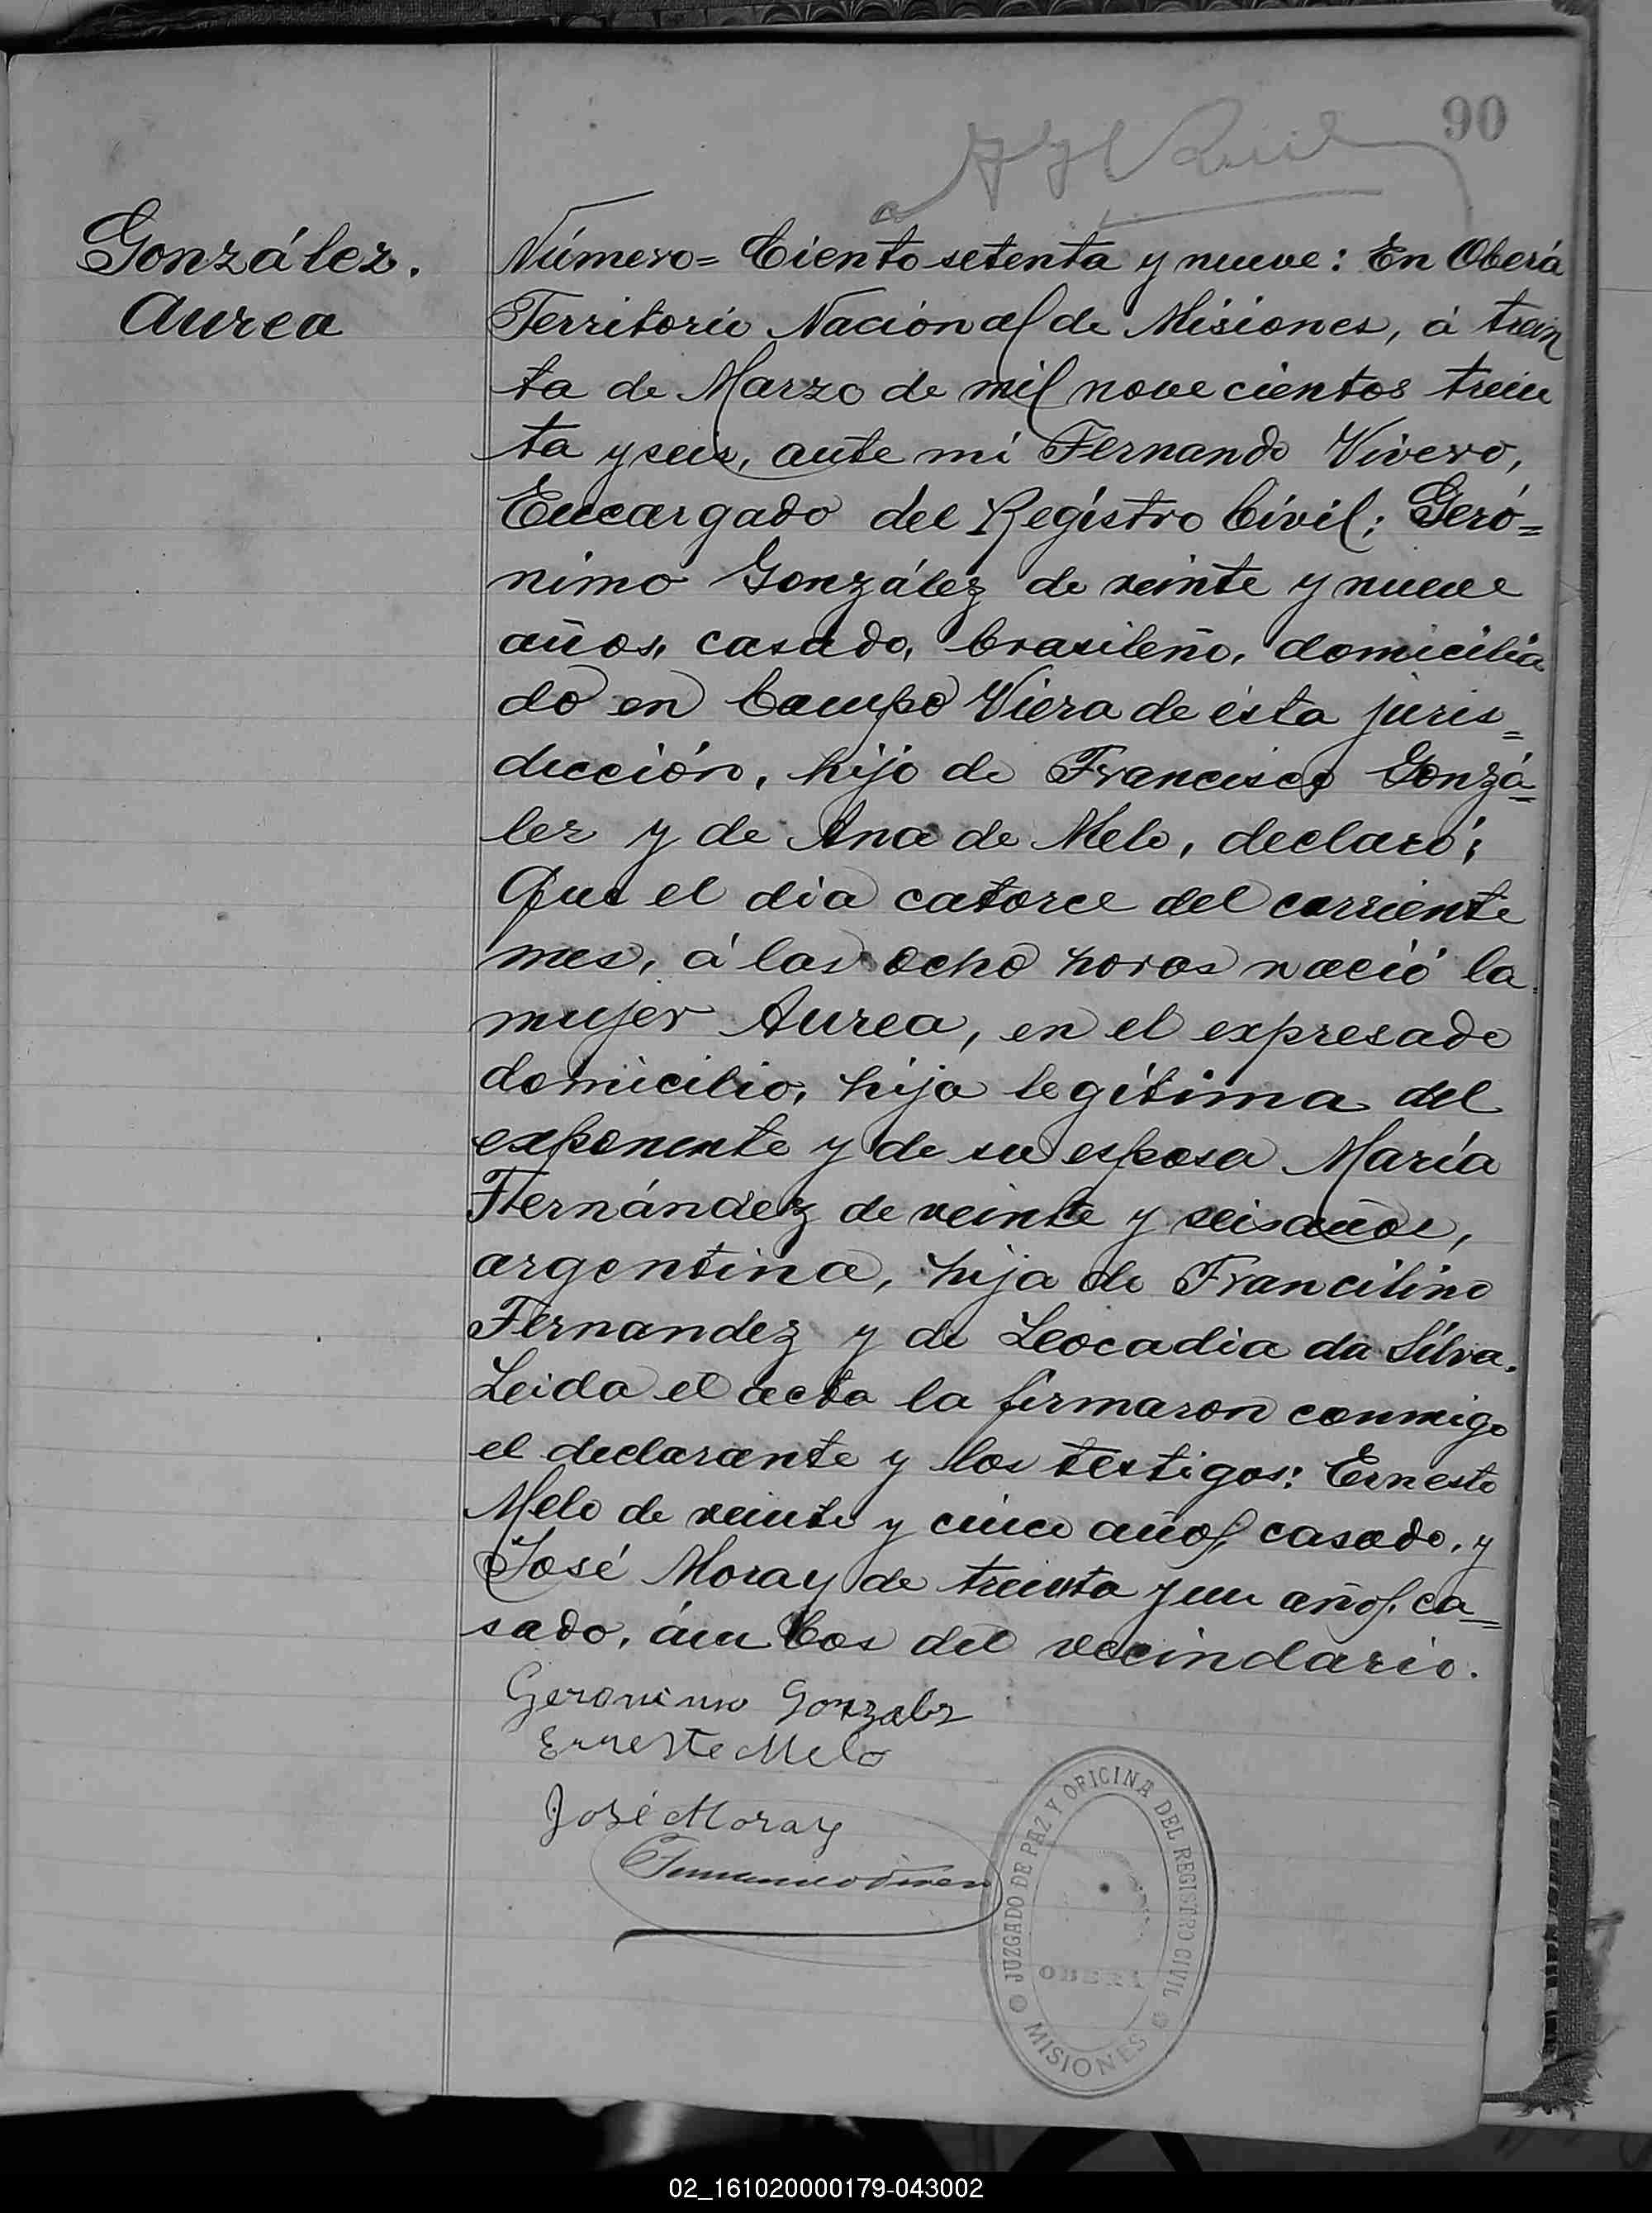 90
González.
Aurea
Número= Ciento setenta y nueve: En Oberá
Territorio Nacional de Misiones, á trein
ta de Marzo de mil novecientos trein
ta y seis, ante mí Fernando Vivero,
Encargado del Registro Civil; Geró=
nimo González de veinte y nueve
años, casado, brasileño, domicilia
do en Campo Viera de ésta juris=
dicción, hijo de Francisco Gonzá=
lez y de Ana de Melo, declaró;
Que el día catorce del corriente
mes, á las ocho horas nació la
mujer Aurea, en el expresado
domicilio, hija legítima del
exponente y de su esposa María
Fernández de veinte y seis años,
argentina, hija de Francilino
Fernandez y de Leocadia da Silva.
Leida el acta la firmaron conmigo
el declarante y los testigos: Ernesto
Melo de veinte y cinco años, casado, y
José Moray de treinta y un años, ca=
sado, ámbos del vecindario.
Geronimo Gonzalez
Ernesto Melo
José Moray
JUZGADO DE PAZ Y OFICINA DEL REGISTRO CIVIL
OBERÁ
MISIONES
02_161020000179-043002